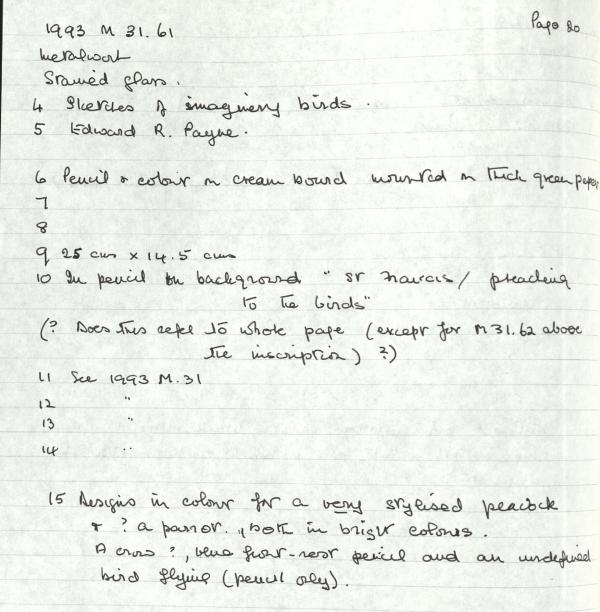 Page 20
1993 M 31.61
Metalwork
Stained glass.
4 Sketches of imaginery birds.
5 Edward R. Payne.
6 Pencil & colour on cream board mounted on thick green paper
7
8
9 25 cms x 14.5 cms
10 In pencil on background "St Francis / preaching
to the birds"
(? Does this refer to whole page (except for M 31.62 above
the inscription) ?)
11 See 1993 M.31
12 "
13 "
14 "
15 Designs in colour for a very stylised peacock
& ? a parrot, both in bright colours.
A cross ?, pencil and an undefined
bird flying (pencil only).